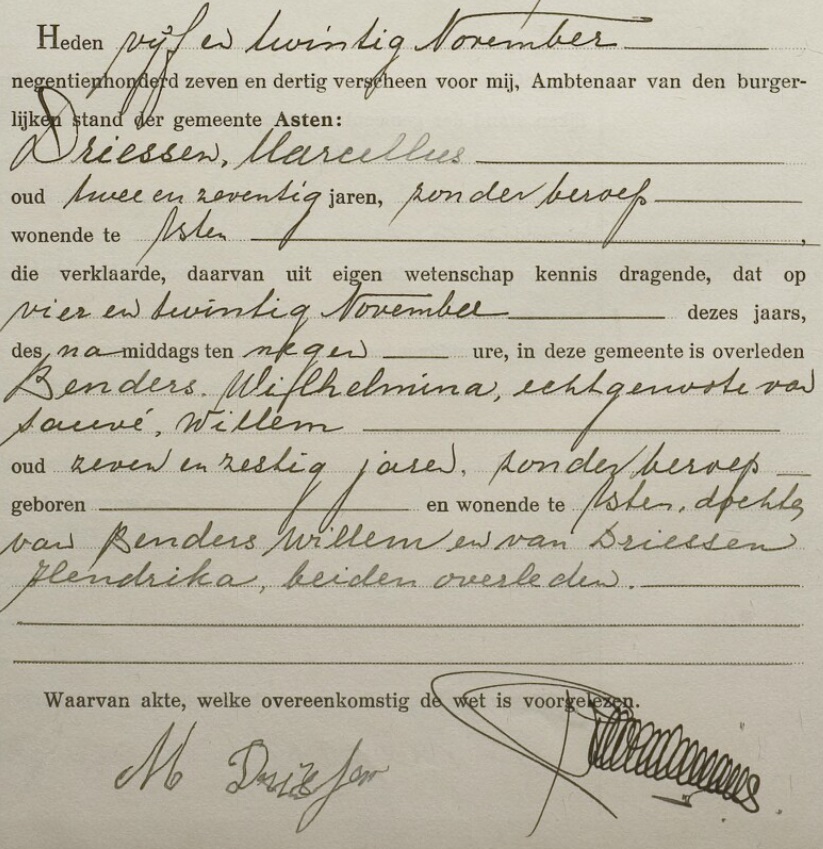 Heden vijf en twintig November
negentienhonderd zeven en dertig verscheen voor mij, Ambtenaar van den burger-
lijken stand der gemeente Asten:
Driessen, Marcellus
oud twee en zeventig jaren, zonder beroep
wonende te Asten,
die verklaarde, daarvan uit eigen wetenschap kennis dragende, dat op
vier en twintig November dezes jaars,
des na middags ten negen ure, in deze gemeente is overleden
Benders. Wilhelmina, echtgenoote van
Sauvé, Willem
oud zeven en zestig jaren, zonder beroep
geboren en wonende te Asten, dochter
van Benders Willem en van Driessen
Hendrika, beiden overleden.
Waarvan akte, welke overeenkomstig de wet is voorgelezen.
M Driessen